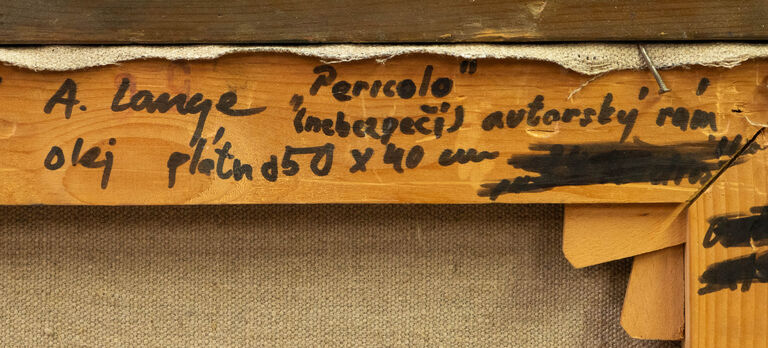 A. Lange „Pericolo"
(nebezpečí) autorský rám
olej plátno 50 x 40 cm